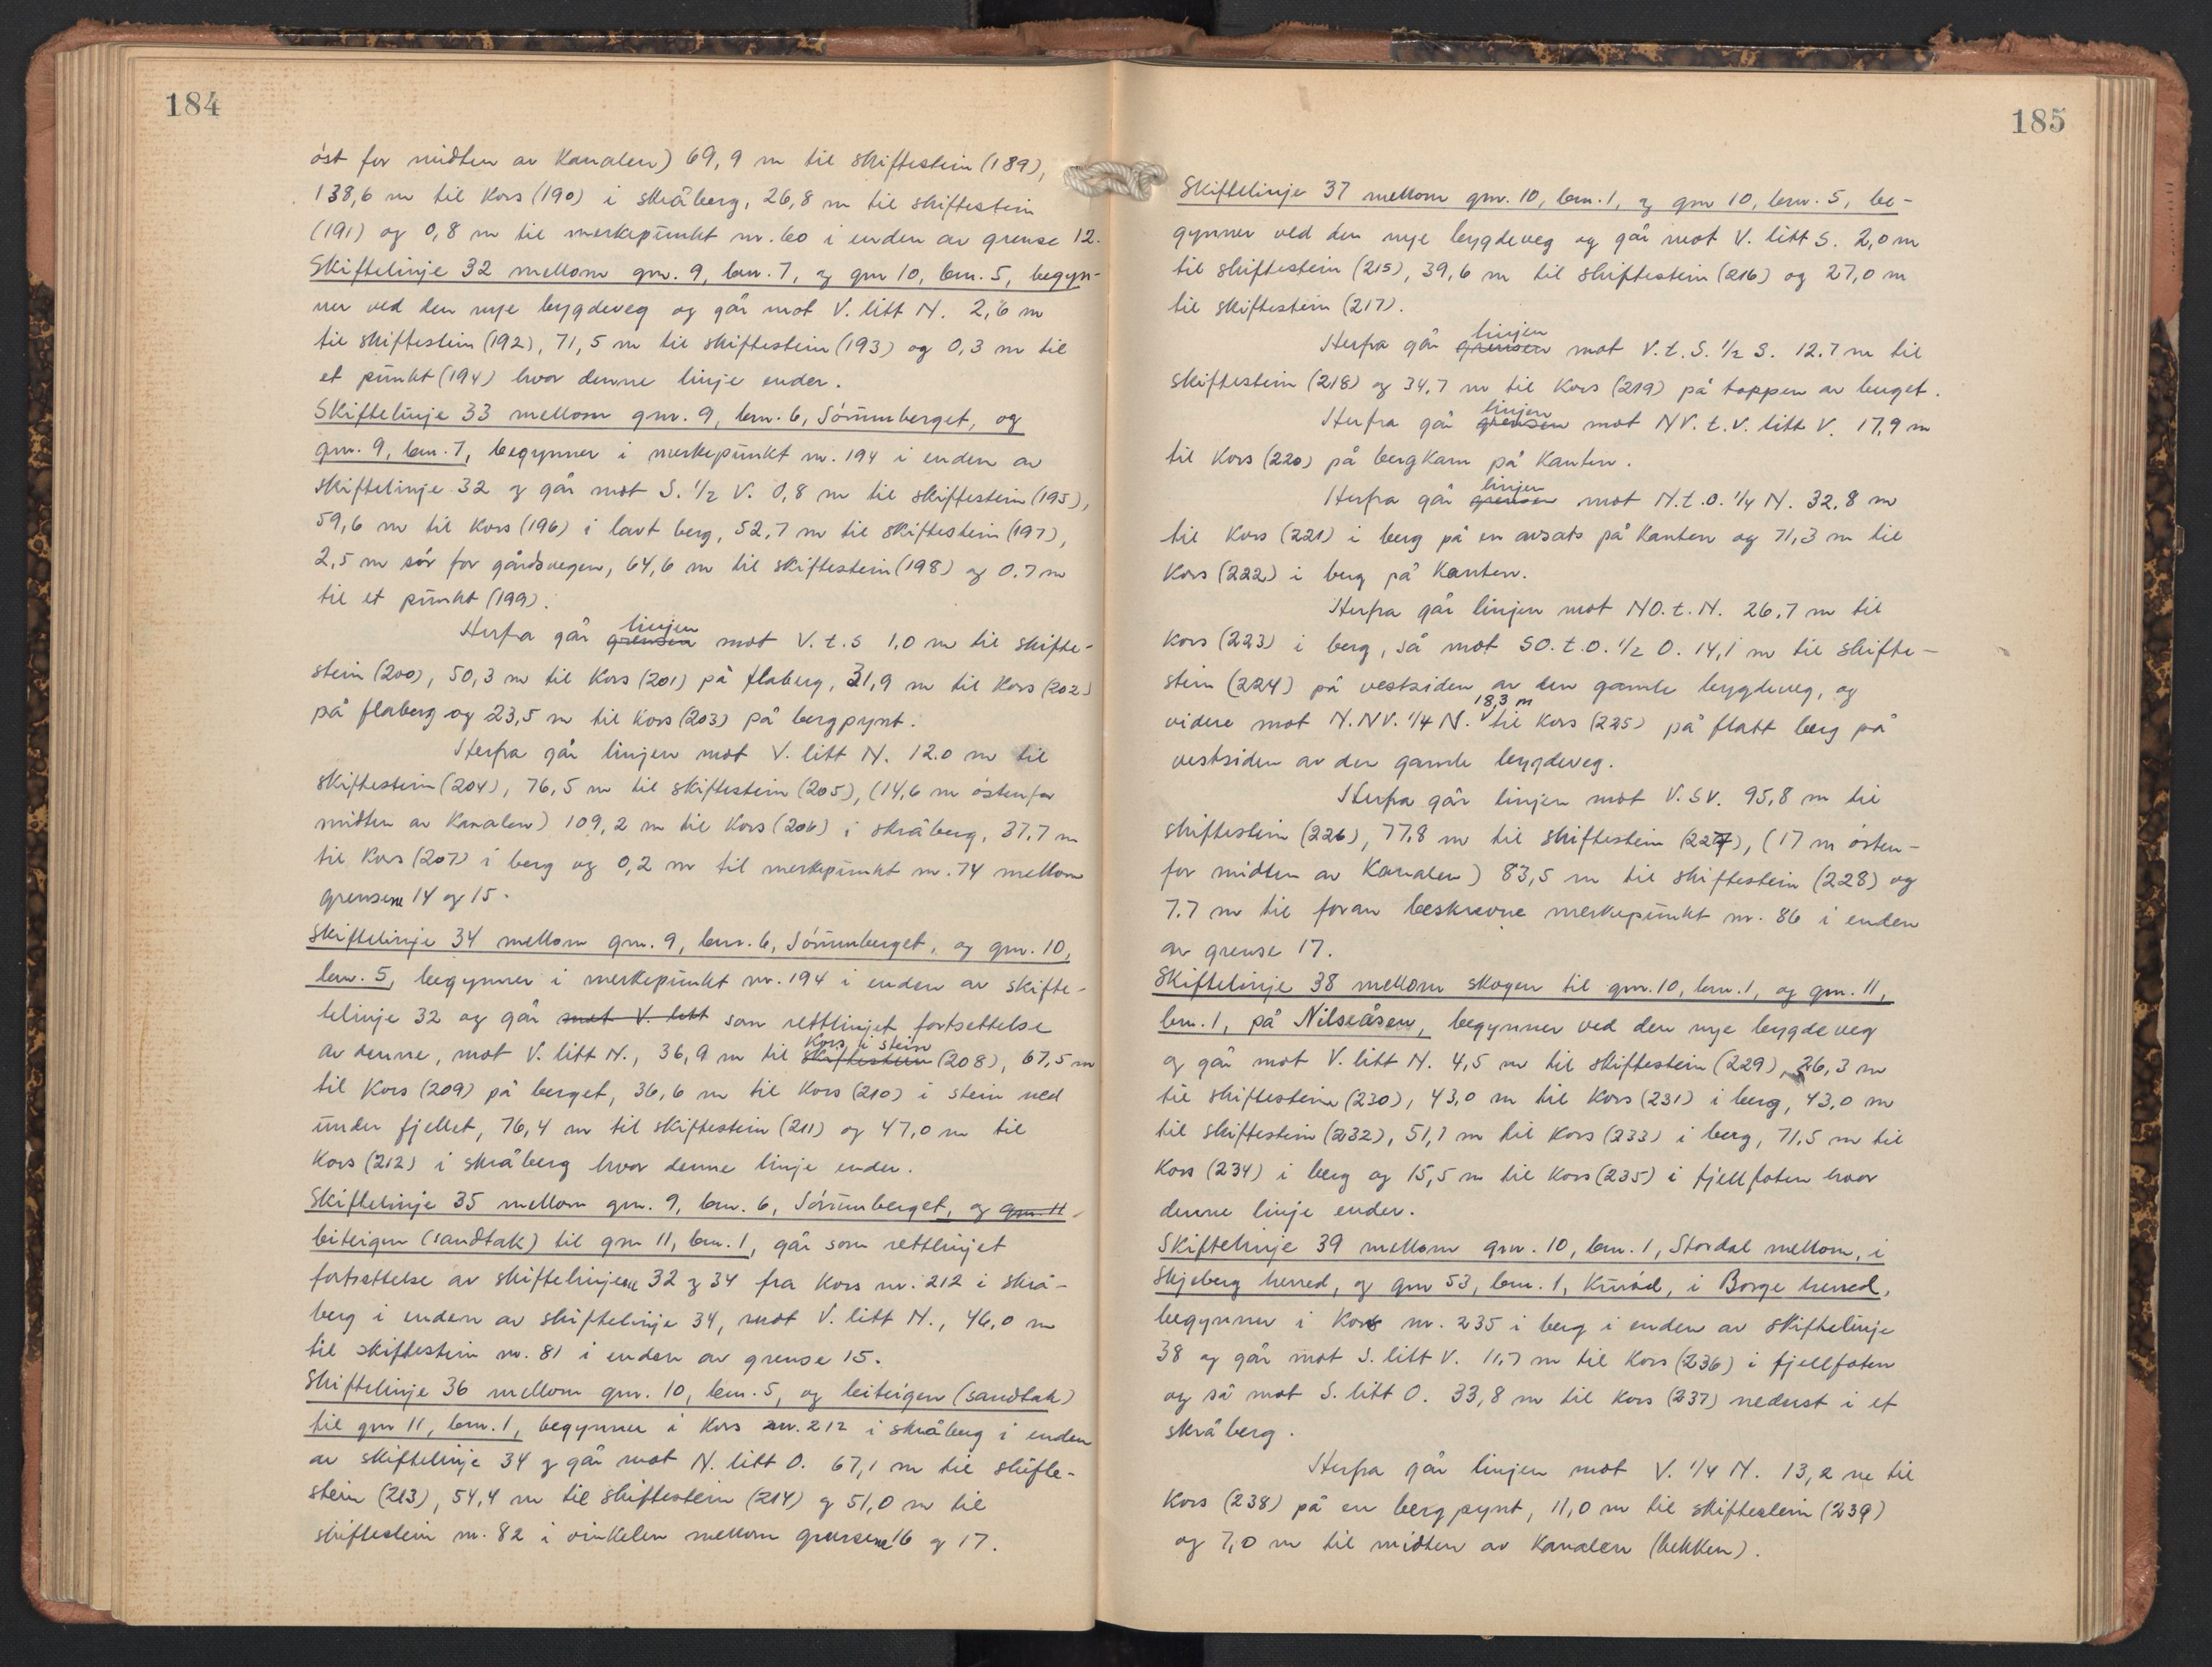 184
øst for midten av kanalen) 69,9 m til skiftestein (189),
138,6 m til kors (190) i skråberg, 26,8 m til skiftestein
(191) og 0,8 m til merkepunkt nr. 60 i enden av grense 12.
Skiftelinje 32 mellom gnr. 9, bnr. 7, og gnr 10, bnr. 5, begyn-
ner ved den nye bygdeveg og går mot V. litt N. 2,6 m
til skiftestein (192), 71,5 m til skiftestein (193) og 0,3 m til
et punkt (194) hvor denne linje ender.
Skiftelinje 33 mellom gnr. 9, bnr. 6, Sørumberget, og
gnr. 9, bnr. 7, begynner i merkepunkt nr. 194 i enden av
skiftelinje 32 og går mot S. 1/2 V. 0,8 m til skiftestein (195),
59,6 m til kors (196) i lavt berg, 52,7 m til skiftestein (197),
2,5 m sør for gårdsvegen, 64,6 m til skiftestein (198) og 0.7 m
til et punkt (199).
Herfra går grensen linjen mot V. t. S 1,0 m til skifte-
stein (200), 50,3 m til kors (201) på flaberg, 31,9 m til kors (202)
på flaberg og 23,5 m til kors (203) på bergpynt.
Herfra går linjen mot V. litt N. 12.0 m til
skiftestein (204), 76,5 m til skiftestein (205), (14,6 m østenfor
midten av kanalen) 109,2 m til kors (206) i skråberg, 37.7 m
til kors (207) i berg og 0,2 m til merkepunkt nr. 74 mellom
grensene 14 og 15.
Skiftelinje 34 mellom gnr. 9, bnr. 6, Sørumberget, og gnr. 10,
bnr. 5, begynner i merkepunkt nr. 194 i enden av skifte-
telinje 32 og går mot V. litt som rettlinjet fortsettelse
av denne, mot V. litt N., 36,9 m til skiftestein kors i stein (208), 67,5 m
til kors (209) på berget, 36,6 m til kors (210) i stein ned
under fjellet, 76,4 m til skiftestein (211) og 47,0 m til
kors (212) i skråberg hvor denne linje ender.
Skiftelinje 35 mellom gnr. 9, bnr. 6, Sørumberget, og gnr. 11
beiteigen (sandtak) til gnr 11, bnr. 1, går som rettlinjet
fortsettelse av skiftelinjene 32 og 34 fra kors nr. 212 i skrå-
berg i enden av skiftelinje 34, mot V. litt N., 46,0 m
til skiftestein nr. 81 i enden av grense 15.
Skiftelinje 36 mellom gnr. 10, bnr. 5, og beiteigen (sandtak)
til gnr 11, bnr. 1, begynner i kors nr. 212 i skråberg i enden
av skiftelinje 34 og går mot N. litt O. 67,1 m til skifte-
stein (213), 54,4 m til skiftestein (214) og 51,0 m til
skiftestein nr. 82 i vinkelen mellom grensene 16 og 17.
185
Skiftelinje 37 mellom gnr. 10, bnr. 1, og gnr 10, bnr. 5, be-
gynner ved den nye bygdeveg og går mot V. litt S. 2,0 m
til skiftestein (215), 39,6 m til skiftestein (216) og 27,0 m
til skiftestein (217).
Herfra går grensen linjen mot V. t. S. 1/2 S. 12.7 m til
skiftestein (218) og 34,7 m til kors (219) på toppen av berget.
Herfra går grensen linjen mot NV. t. V. litt V. 17,9 m
til kors (220) på bergkam på kanten.
Herfra går grensen linjen mot N. t. O. 1/4 N. 32,8 m
til kors (221) i berg på en avsats på kanten og 71,3 m til
kors (222) i berg på kanten.
Herfra går linjen mot NO. t. N. 26,7 m til
kors (223) i berg, så mot SO. t. O. 1/2 O. 14,1 m til skifte-
stein (224) på vestsiden av den gamle bygdeveg, og
videre mot N. NV. 1/4 N. 18,3 m til kors (225) på flatt berg på
vestsiden av den gamle bygdeveg.
Herfra går linjen mot V. SV. 95,8 m til
skiftestein (226), 77,8 m til skiftestein (227), (17 m østen-
for midten av kanalen) 83,5 m til skiftestein (228) og
7.7 m til foran beskrevne merkepunkt nr. 86 i enden
av grense 17.
Skiftelinje 38 mellom skogen til gnr. 10, bnr. 1, og gnr. 11,
bnr. 1, på Nilseåsen, begynner ved den nye bygdeveg
og går mot V. litt N. 4,5 m til skiftestein (229), 26,3 m
til skiftestein (230), 43,0 m til kors (231) i berg, 43,0 m
til skiftestein (232), 51,7 m til kors (233) i berg, 71,5 m til
kors (234) i berg og 15,5 m til kors (235) i fjellfoten hvor
denne linje ender.
Skiftelinje 39 mellom gnr. 10, bnr. 1, Stordal mellom, i
Skjeberg herred, og gnr 53, bnr. 1, Knrød, i Borge herred,
begynner i kors nr. 235 i berg i enden av skiftelinje
38 og går mot S. litt V. 11,7 m til kors (236) i fjellfoten
og så mot S. litt O. 33,8 m til kors (237) nederst i et
skråberg.
Herfra går linjen mot V. 1/4 N. 13,2 m til
kors (238) på en bergpynt, 11,0 m til skiftestein (239)
og 7,0 m til midten av kanalen (bekken).